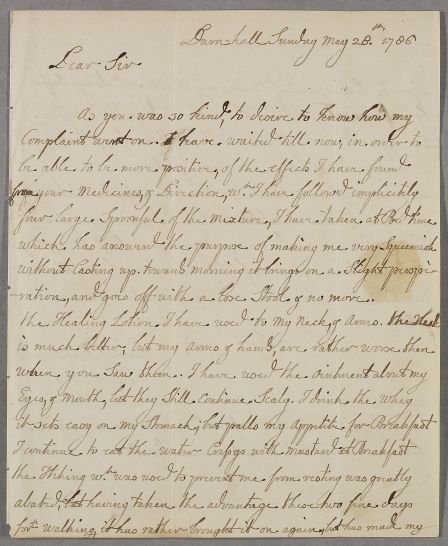 Darnhall Sunday May 28.th 1786
Dear Sir
As you was so kind, to desire to know how my
Complaint went on I have waited till now, in order to
be able to be more positive, of the effects I have found
from your Medicines, & Direction, wch I have follow'd implicitly
four large Spoonful of the Mixture, I have taken at Bed time
which has answerd the purpose of making me very Squeemish
without Casting up. toward morning it brings on a Slight perspi-
-ration, and goes off with a lose Stool & no more.
the Healing Lotion I have used to my Neck, & Arms. the Neck
is much better, but my Arms & hands, are rather worse then
when you Saw them. I have used the Ointment about my
Eyes, & Mouth, but they Still Continue Scaly. I drink the Whey
it sets easy on my Stomach, but palls my Appetite for Breakfast
I continue to eat the water Cresses with Mustard at Breakfast
the Itching wch was used to prevent me from resting was greatly
abated, but having taken the advantage these two fine days
for walking, it has rather brought it on again, but has made my